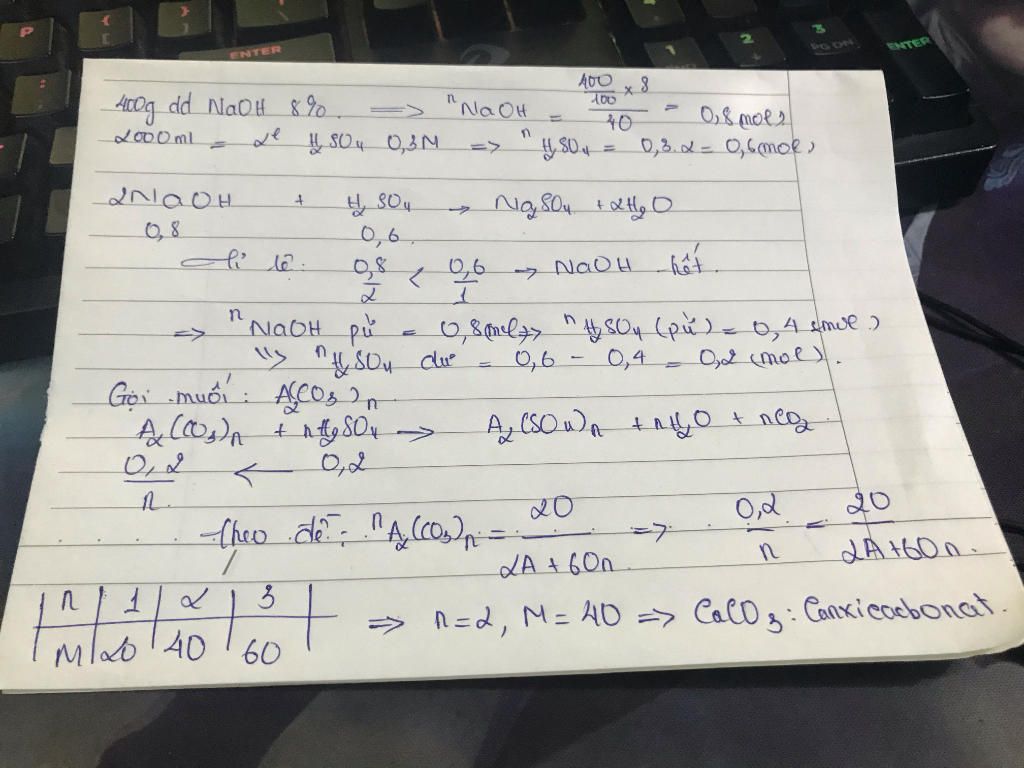 P
{
[
}
]
ENTER
:
;
"
1
2
3
PG DN
ENTER
400g dd NaOH 8%. => nNaOH = 400/100 × 8 / 40 = 0,8 (mol)
2000ml = 2l H2SO4 0,3M => nH2SO4 = 0,3.2 = 0,6 (mol)
2NaOH + H2SO4 → Na2SO4 + 2H2O
0,8 0,6
Tỉ lệ: 0,8/2 < 0,6/1 → NaOH hết.
=> nNaOH pứ = 0,8(mol) => nH2SO4 (pứ) = 0,4 (mol)
=> nH2SO4 dư = 0,6 - 0,4 = 0,2 (mol).
Gọi muối: A2(CO3)n
A2(CO3)n + nH2SO4 → A2(SO4)n + nH2O + nCO2
0,2/n ← 0,2
Theo đề: nA2(CO3)n = 20/2A + 60n => 0,2/n = 20/2A+60n.
n 1 2 3
M 20 40 60
=> n=2, M=40 => CaCO3: Canxicacbonat.